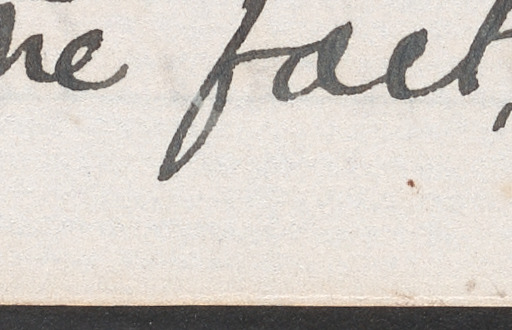 the fact,